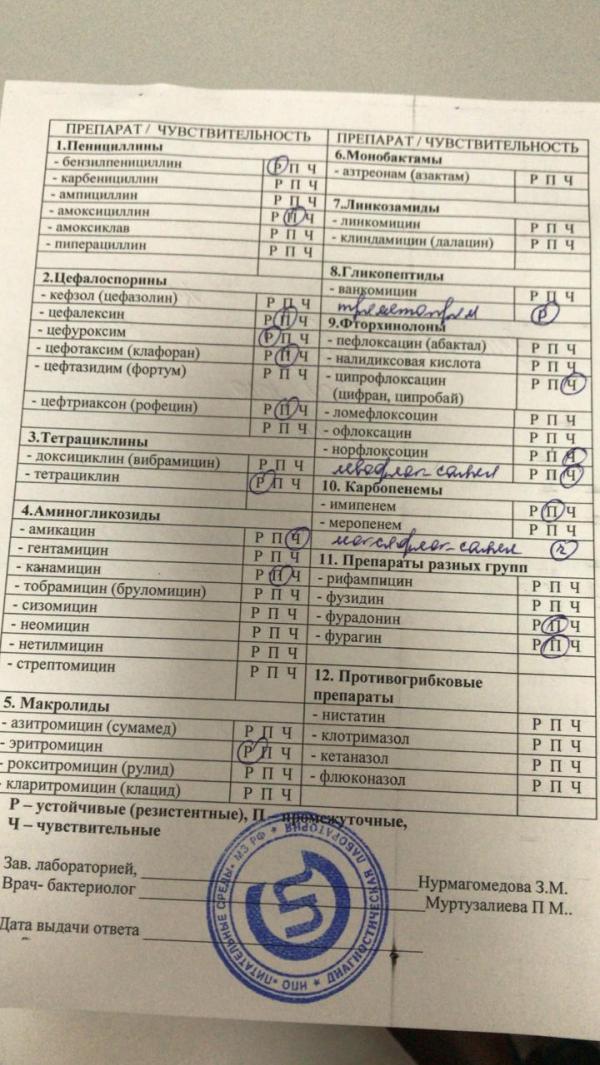 ПРЕПАРАТ / ЧУВСТВИТЕЛЬНОСТЬ
1.Пенициллины
- бензилпенициллин Р П Ч
- карбенициллин Р П Ч
- ампициллин Р П Ч
- амоксициллин Р П Ч
- амоксиклав Р П Ч
- пиперациллин Р П Ч
2.Цефалоспорины
- кефзол (цефазолин) Р П Ч
- цефалексин Р П Ч
- цефуроксим Р П Ч
- цефотаксим (клафоран) Р П Ч
- цефтазидим (фортум) Р П Ч
- цефтриаксон (рофецин) Р П Ч
Р П Ч
3.Тетрациклины
- доксициклин (вибрамицин) Р П Ч
- тетрациклин Р П Ч
4.Аминогликозиды
- амикацин Р П Ч
- гентамицин Р П Ч
- канамицин Р П Ч
- тобрамицин (бруломицин) Р П Ч
- сизомицин Р П Ч
- неомицин Р П Ч
- нетилмицин Р П Ч
- стрептомицин Р П Ч
5. Макролиды
- азитромицин (сумамед) Р П Ч
- эритромицин Р П Ч
- рокситромицин (рулид) Р П Ч
- кларитромицин (клацид) Р П Ч
ПРЕПАРАТ / ЧУВСТВИТЕЛЬНОСТЬ
6.Монобактамы
- азтреонам (азактам) Р П Ч
7.Линкозамиды
- линкомицин Р П Ч
- клиндамицин (далацин) Р П Ч
8.Гликопептиды
- ванкомицин Р П Ч
триметоприм Р
9.Фторхинолоны
- пефлоксацин (абактал) Р П Ч
- налидиксовая кислота Р П Ч
- ципрофлоксацин Р П Ч
(цифран, ципробай)
- ломефлоксоцин Р П Ч
- офлоксацин Р П Ч
- норфлоксоцин Р П Ч
левофлок-сацин Р П Ч
10. Карбопенемы
- имипенем Р П Ч
- меропенем Р П Ч
моксифлок-сацин Ч
11. Препараты разных групп
- рифампицин Р П Ч
- фузидин Р П Ч
- фурадонин Р П Ч
- фурагин Р П Ч
12. Противогрибковые
препараты
- нистатин Р П Ч
- клотримазол Р П Ч
- кетаназол Р П Ч
- флюконазол Р П Ч
Р – устойчивые (резистентные), П – промежуточные,
Ч – чувствительные
Зав. лабораторией, Нурмагомедова З.М.
Врач- бактериолог Муртузалиева П М..
Дата выдачи ответа
НПО «ПИТАТЕЛЬНЫЕ СРЕДЫ» МЗ РФ ★ ДИАГНОСТИЧЕСКАЯ ЛАБОРАТОРИЯ